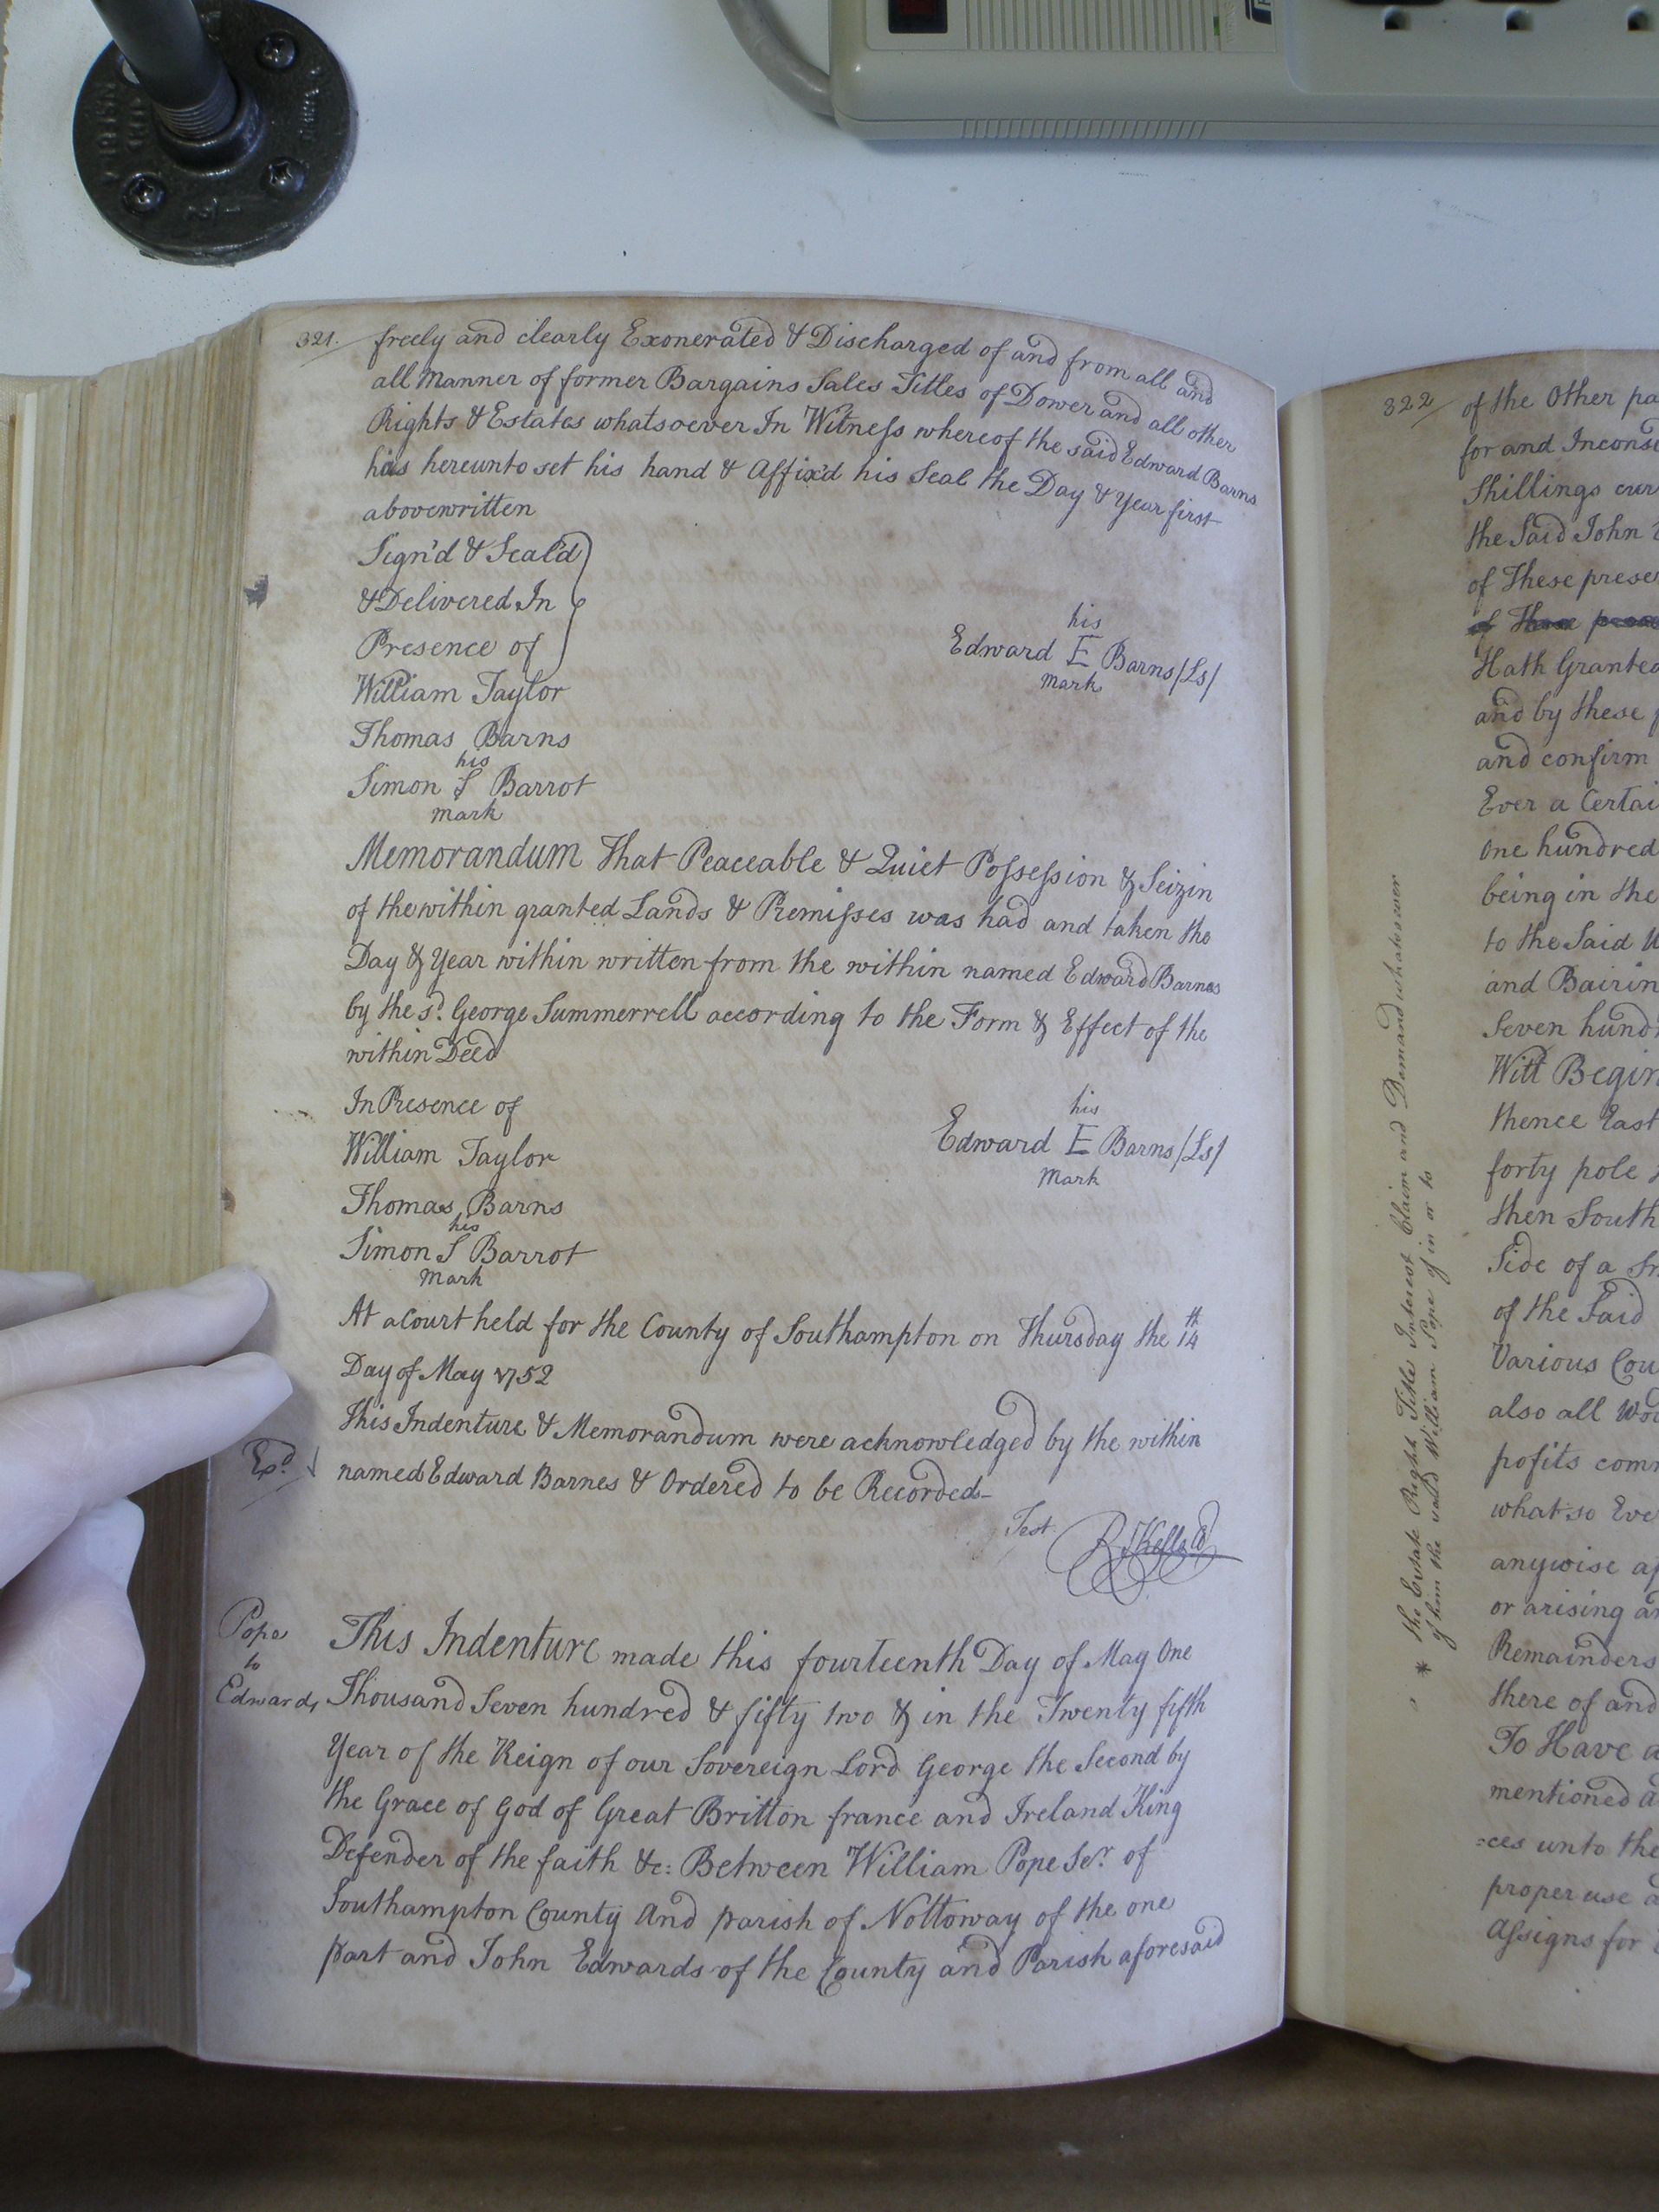 321. freely and clearly Exonerated & Discharged of and from all and
all Manner of former Bargains Sales Titles of Dower and all other
Rights & Estates whatsoever In Witness whereof the said Edward Barns
has hereunto set his hand & Affix'd his Seal the Day & Year first
abovewritten
Sign'd & Seal'd
& Delivered In
Presence of
his
Edward E Barns /Ls/
Mark
William Taylor
Thomas Barns
his
Simon S Barrot
mark
Memorandum That Peaceable & Quiet Possession & Seizin
of the within granted Lands & Premisses was had and taken the
Day & Year within written from the within named Edward Barnes
by the sd. George Summerrell according to the Form & Effect of the
within Deed
In Presence of
his
Edward E Barns /Ls/
Mark
William Taylor
Thomas Barns
his
Simon S Barrot
Mark
At a Court held for the County of Southampton on Thursday the 14th
Day of May 1752
This Indenture & Memorandum were acknowledged by the within
Exd. named Edward Barnes & Ordered to be Recorded
Test.
Pope
to
Edwards
This Indenture made this fourteenth Day of May One
Thousand Seven hundred & fifty two & in the Twenty fifth
Year of the Reign of our Sovereign Lord George the Second by
the Grace of God of Great Britton france and Ireland King
Defender of the faith &c: Between William Pope Ser. of
Southampton County And parish of Nottoway of the one
part and John Edwards of the County and Parish aforesaid
322 of the Other
for and
Shillings
the Said John
of These
Hath Granted
and by these
and confirm
Ever a Certain
One hundred
being in the
to the Said
and
Seven
Witt
thence East
forty pole
then South
Side of a
of the Said
Various
also all
pofits
what so Ever
anywise
or arising
Remainders
there of and
To Have
mentioned
=ces unto the
proper use
Assigns for
* the Estate Right Title Interest Claim and Demand whatsoever
of him the said William Pope of in or to